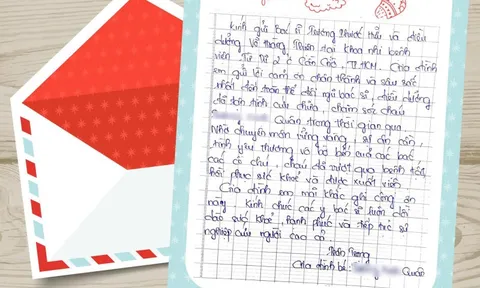 Kính gửi bác sĩ Trương Phước Hữu và điều
dưỡng Võ Hoàng Thiên tại khoa nhi bệnh
viện Từ Dũ 2 ở Cần Giờ, TP.HCM. Gia đình
em gửi lời cảm ơn chân thành và sâu sắc
nhất đến toàn thể đội ngũ bác sĩ, điều dưỡng
đã tận tình cứu chữa, chăm sóc cháu
Quân trong thời gian qua.
Nhờ chuyên môn vững vàng, sự ân cần,
tình yêu thương và bao bọc của các bác
các cô chú, cháu đã vượt qua bệnh tật,
hồi phục sức khoẻ và được xuất viện.
Gia đình em mãi khắc ghi công ơn
này. Kính chúc các y bác sĩ luôn dồi
dào sức khoẻ, hạnh phúc và tiếp tục sự
nghiệp cứu người cao cả.
Trân trọng
Gia đình bé: Quân